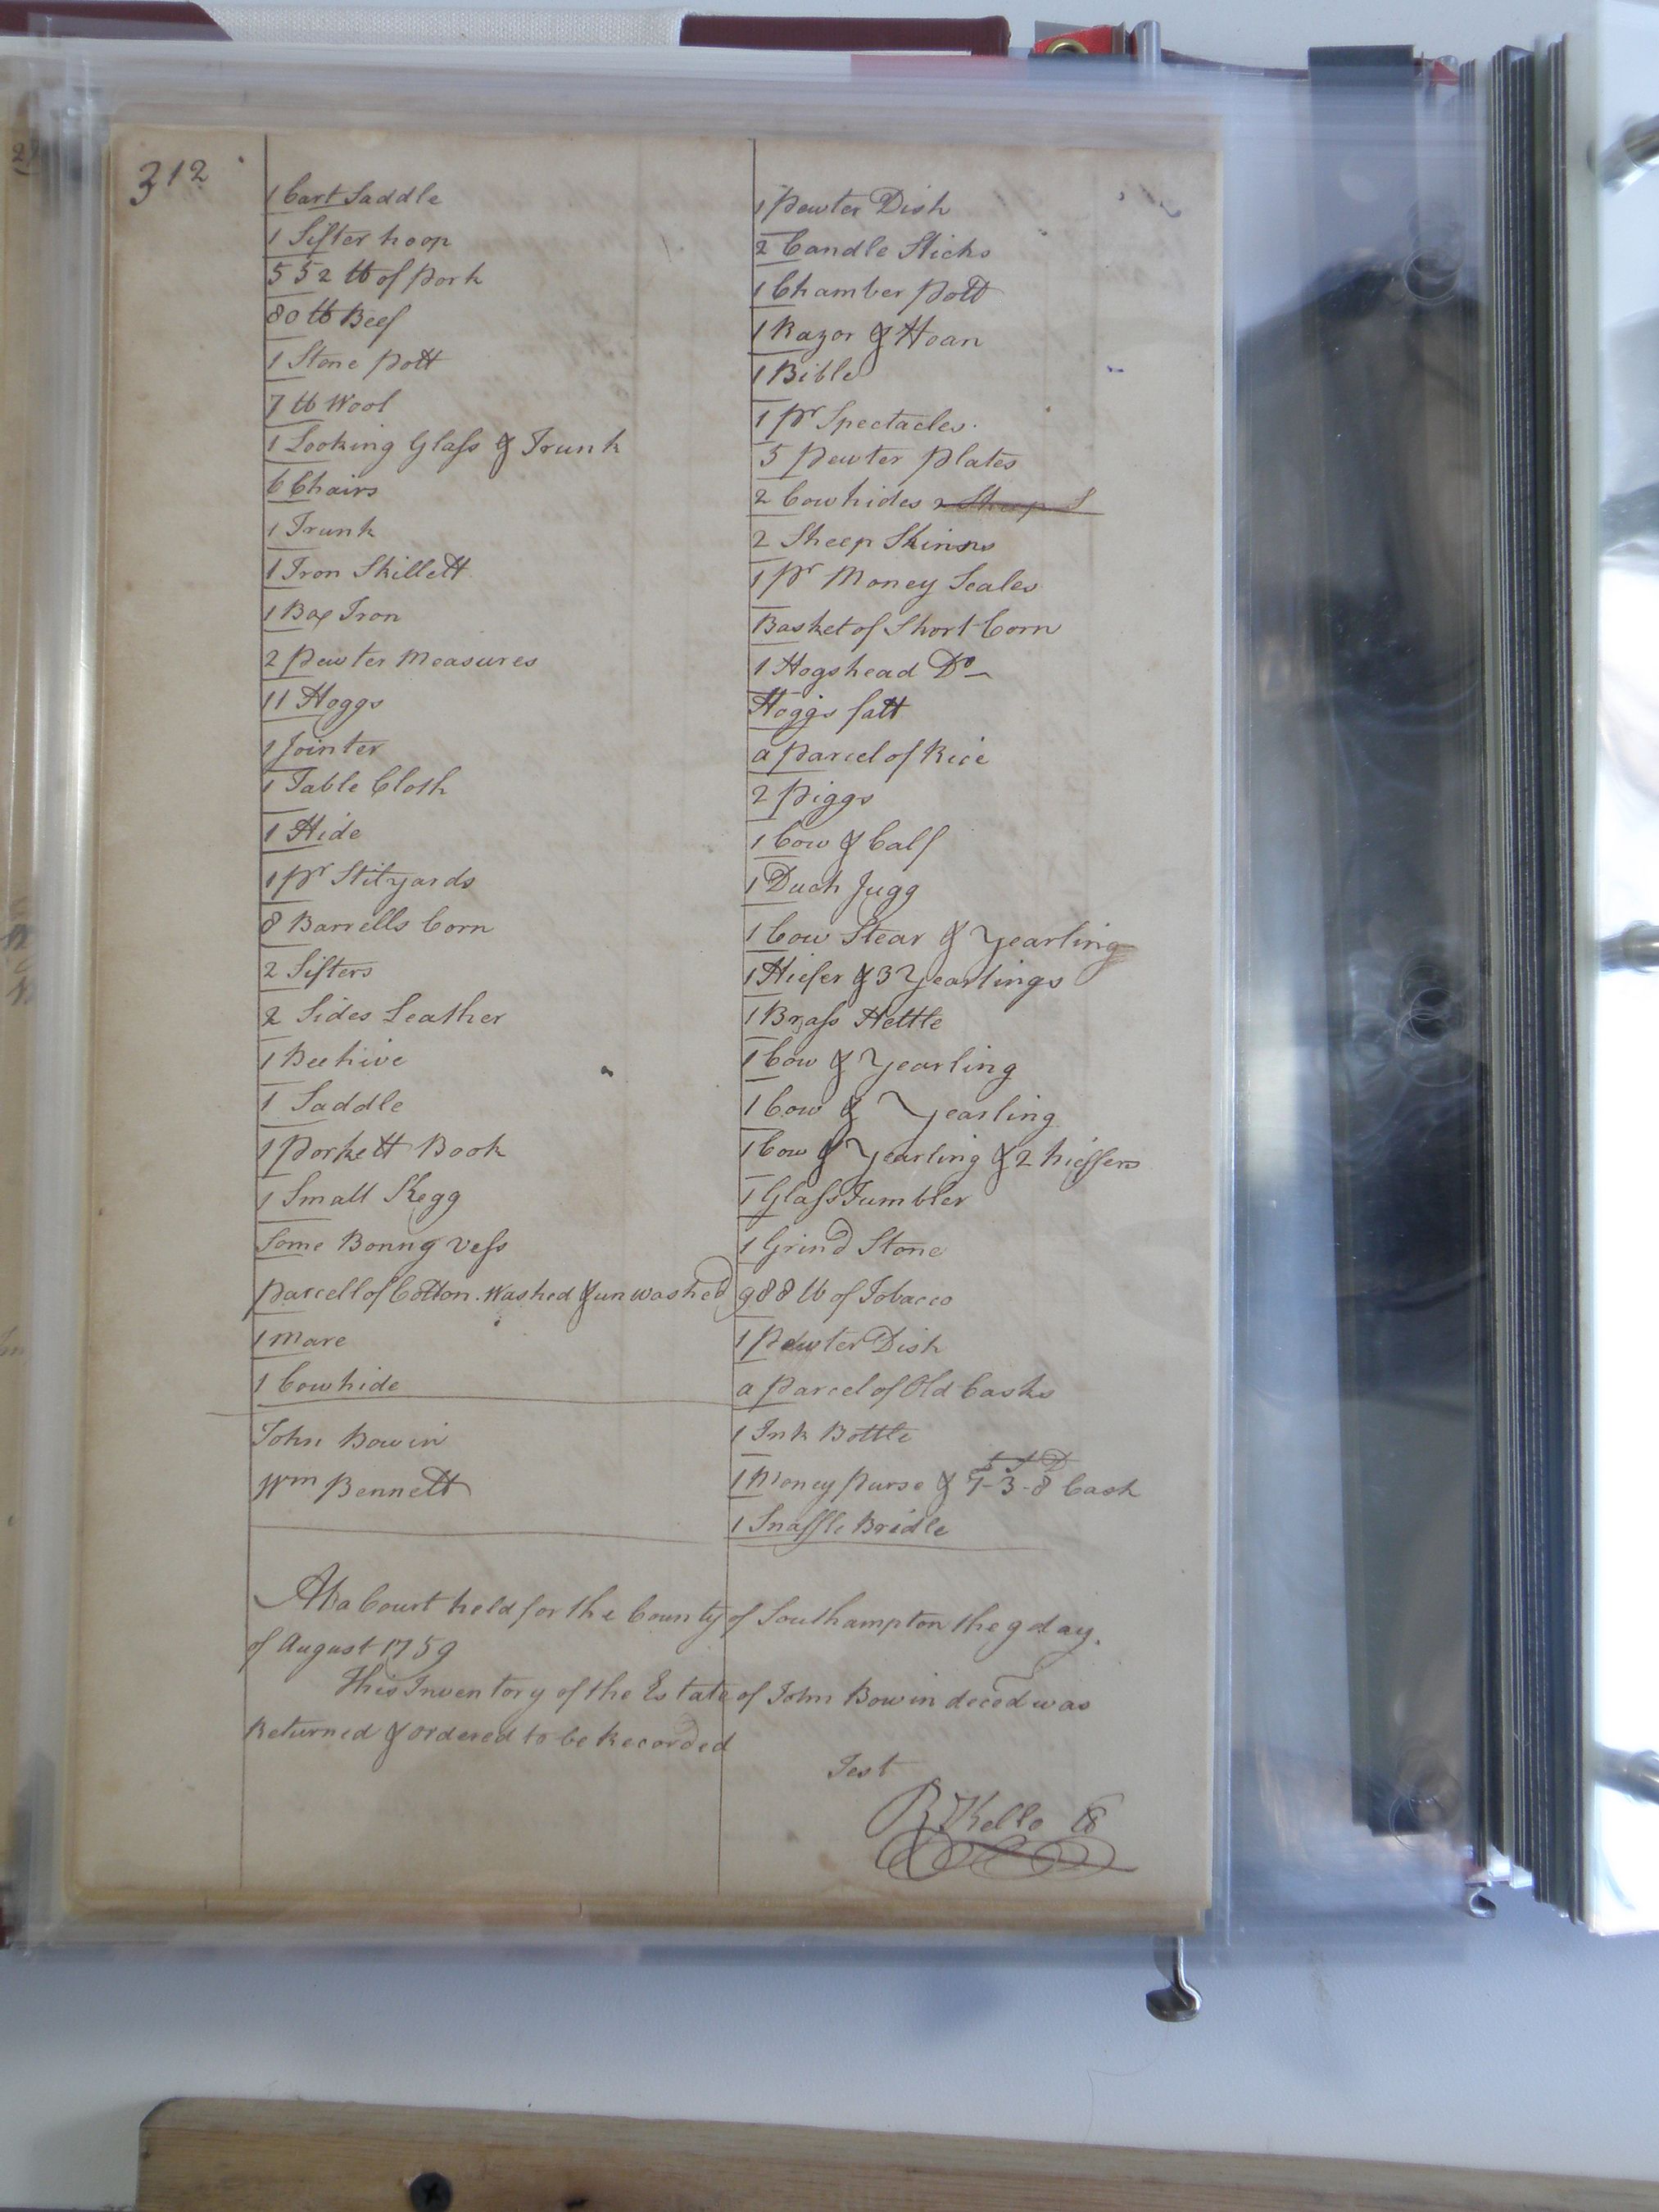 312
1 Cart Saddle
1 Sifter hoop
552 lb of pork
80 lb Beef
1 Stone pott
7 lb Wool
1 Looking Glass & Trunk
6 Chairs
1 Trunk
1 Iron Skillett
1 Box Iron
2 pewter Measures
11 Hoggs
1 Jointer
1 Table Cloth
1 Hide
1 pr Stilyards
8 Barrells Corn
2 Sifters
2 Sides Leather
1 Beehive
1 Saddle
1 Pockett Book
1 Small Kegg
Some
parcell of Cotton. Washed & unwashed
1 mare
1 Cowhide
John Bowin
Wm Bennett
1 Pewter Dish
2 Candle Sticks
1 Chamber pott
1 Razor & Hoan
1 Bible
1 pr Spectacles.
5 Pewter plates
2 Cowhides 2 Sheep S
2 Sheep Skinns
1 pr Money Scales
Basket of Short Corn
1 Hogshead Do
Hoggs fatt
a parcel of Rice
2 piggs
1 Cow & Calf
1 Duch Jugg
1 Cow Stear & Yearling
1 Hiefer & 3 Yearlings
1 Brass Kettle
1 Cow & Yearling
1 Cow & Yearling
1 Cow & Yearling & 2 hieffers
1 Glass Tumbler
1 Grind Stone
988 lb of Tobacco
1 Pewter Dish
a parcel of Old Casks
1 Ink Bottle
£ S D
1 Money purse & 7-3-8 Cash
1 Snaffle Bridle
At a Court held for the County of Southampton the 9 day.
of August 1759
This Inventory of the Estate of John Bowin decd was
Returned & ordered to be Recorded
Test
R Kello